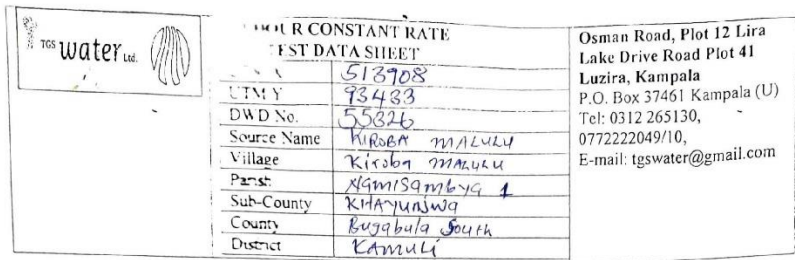 TGS water Ltd.
CONSTANT RATE
DATA SHEET
513908
UTM Y 93433
DWD No. 55326
Source Name KIROBA MALULU
Village Kiroba MALULU
Parish Namisambya 1
Sub-County
County Bugabula South
District KAMULI
Osman Road, Plot 12 Lira
Lake Drive Road Plot 41
Luzira, Kampala
P.O. Box 37461 Kampala (U)
Tel: 0312 265130,
0772222049/10,
E-mail: tgswater@gmail.com